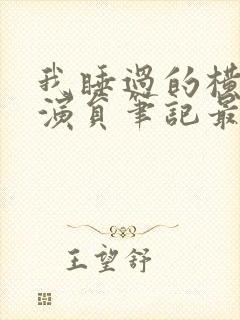 我睡過的橫
演員筆記最
王望舒